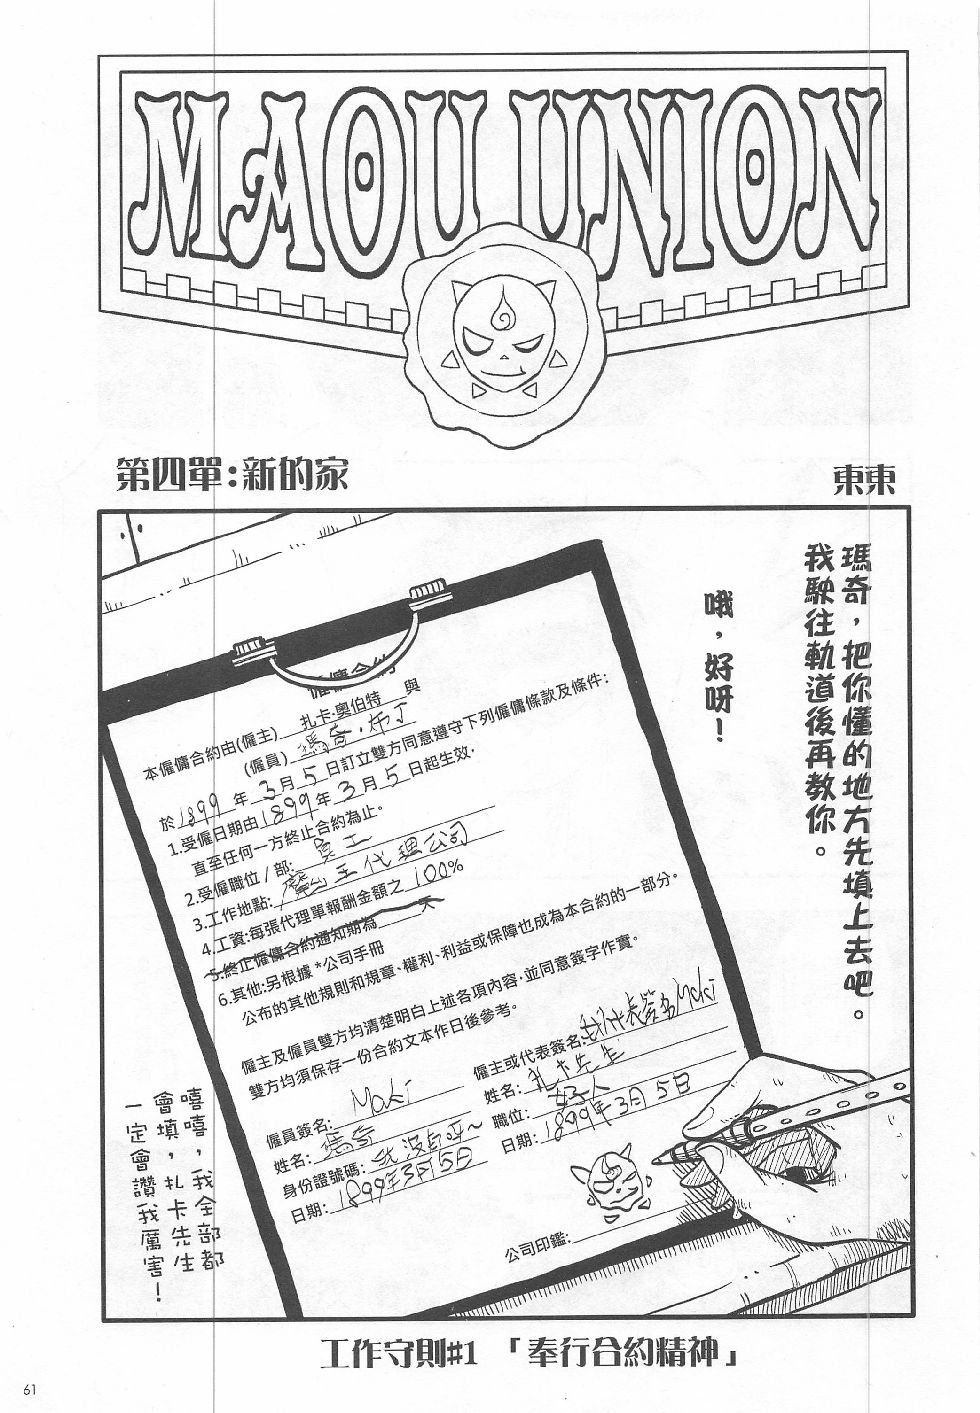 MAOU UNION
第四單：新的家
東東
瑪奇，把你懂的地方先填上去吧。
我駛往軌道後再教你。
哦，好呀！
僱傭合約
本僱傭合約由(僱主) 扎卡·奧伯特 與
(僱員) 瑪奇·布丁
於 1899 年 3 月 5 日訂立雙方同意遵守下列僱傭條款及條件：
1.受僱日期由 1899 年 3 月 5 日起生效，
直至任何一方終止合約為止。
2.受僱職位 / 部: 員工
3.工作地點: 魔王代理公司
4.工資:每張代理單報酬金額之 100%
5.終止僱傭合約通知期為 天
6.其他:另根據 *公司手冊
公布的其他規則和規章、權利、利益或保障也成為本合約的一部分。
僱主及僱員雙方均清楚明白上述各項內容，並同意簽字作實。
雙方均須保存一份合約文本作日後參考。
僱員簽名: Maki
姓名: 瑪奇
身份證號碼: 我沒有呀~
日期: 1899年3月5日
僱主或代表簽名: 我代表簽名Maki
姓名: 扎卡先生
職位: 好人
日期: 1899年3月5日
公司印鑑:
嘻嘻，我全部都
會填，扎卡先生
一定會讚我厲害！
工作守則#1 「奉行合約精神」
61